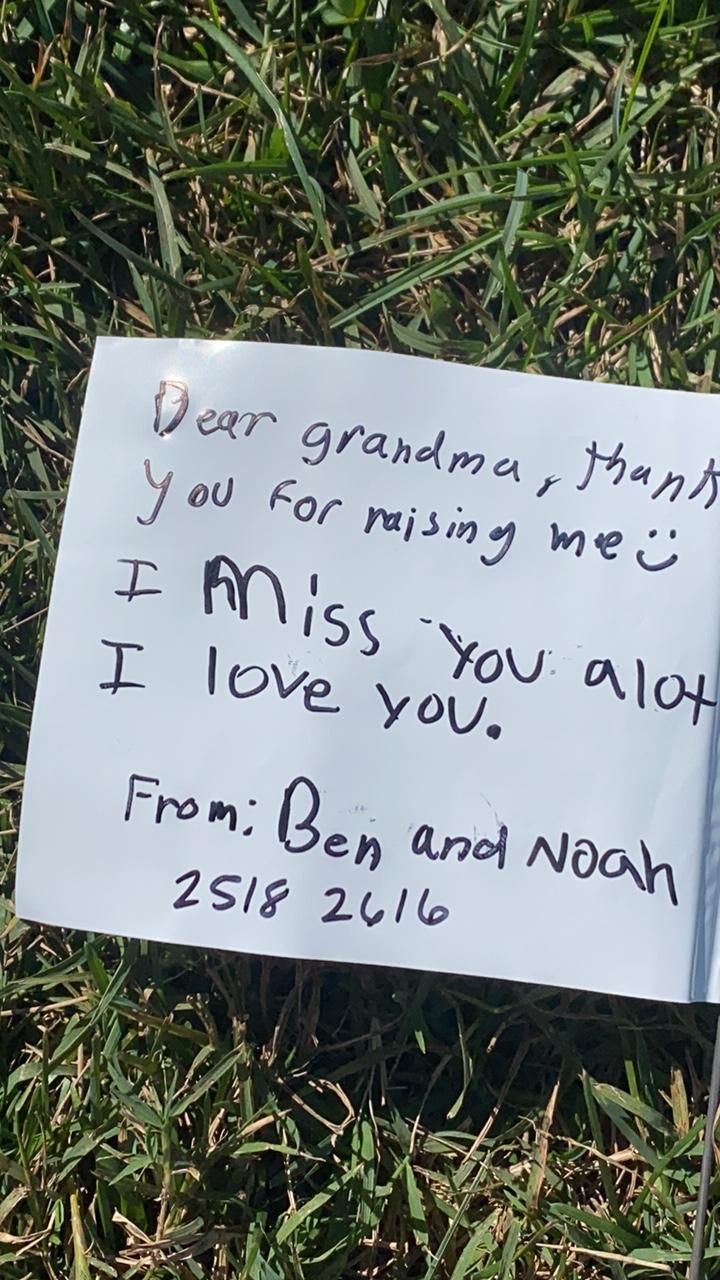 Dear grandma, thank
you for raising me :)
I Miss You alot
I love you.
From: Ben and Noah
2518 2616